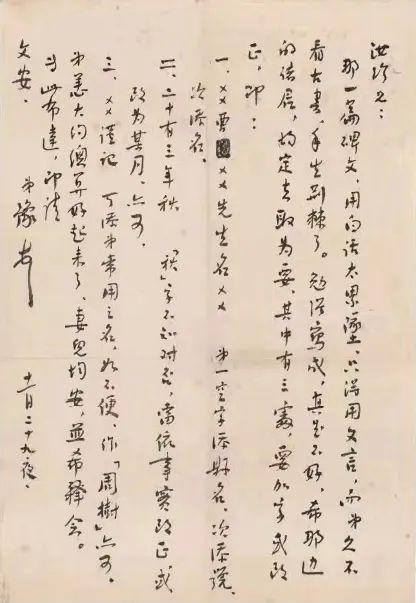 汝珍兄：
那一篇碑文，用白话太累墜，只得用文言，而弟久不
看古書，手生荆棘了。勉强寫成，真是不好，希那边
的諸君，酌定去取為要。其中有三處，要加字或改
正，即：
一、××曹 ××先生名×× 弟一空字添縣名，次添號，
次添名。
二、二十有三年秋 「秋」字不知对否，當依事實改正或
改为某月，亦可。
三、××謹記 可添弟常用之名，如不便，作「周樹」亦可。
弟恙大約總算好起来了，妻兒均安，並希釋念。
專此布達，即請
文安。
弟豫 上 十一月二十九夜。